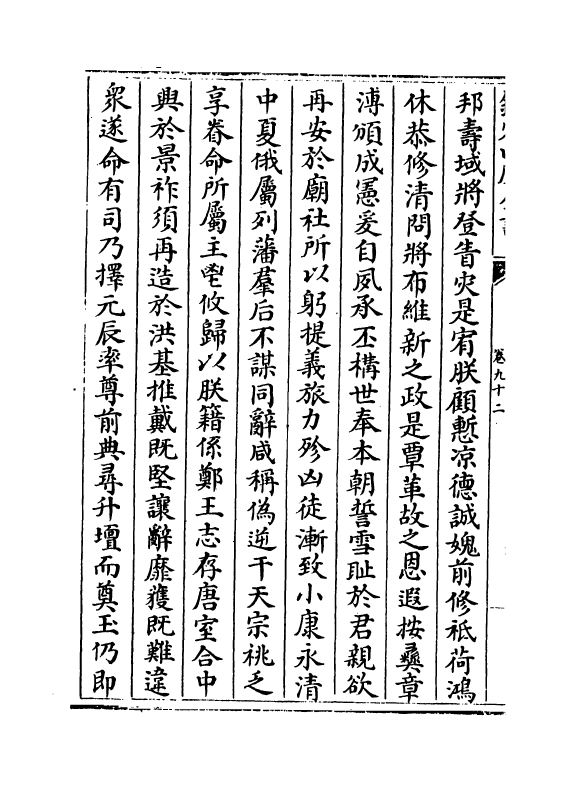 卷九十二
邦壽域將登眚災是宥朕顧慙凉德誠媿前修祗荷鴻
休恭修清問將布維新之政是覃革故之恩遐按彞章
溥頒成憲爰自夙承丕構世奉本朝誓雪耻於君親欲
再安於廟社所以躬提義旅力殄凶徒漸致小康永清
中夏俄屬列藩羣后不謀同辭咸稱偽逆干天宗祧乏
享眷命所屬主鬯攸歸以朕籍係鄭王志存唐室合中
興於景祚須再造於洪基推戴既堅讓辭靡獲既難違
衆遂命有司乃擇元辰率尊前典尋升壇而奠玉仍即